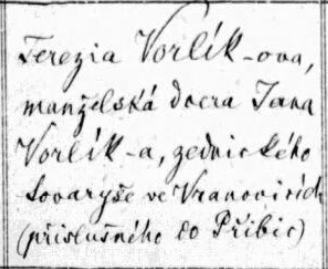 Terezia Vorlík-ova,
manželská dcera Jana
Vorlík-a, zednického
tovaryše ve Vranovicích
(příslušného do Přibic)